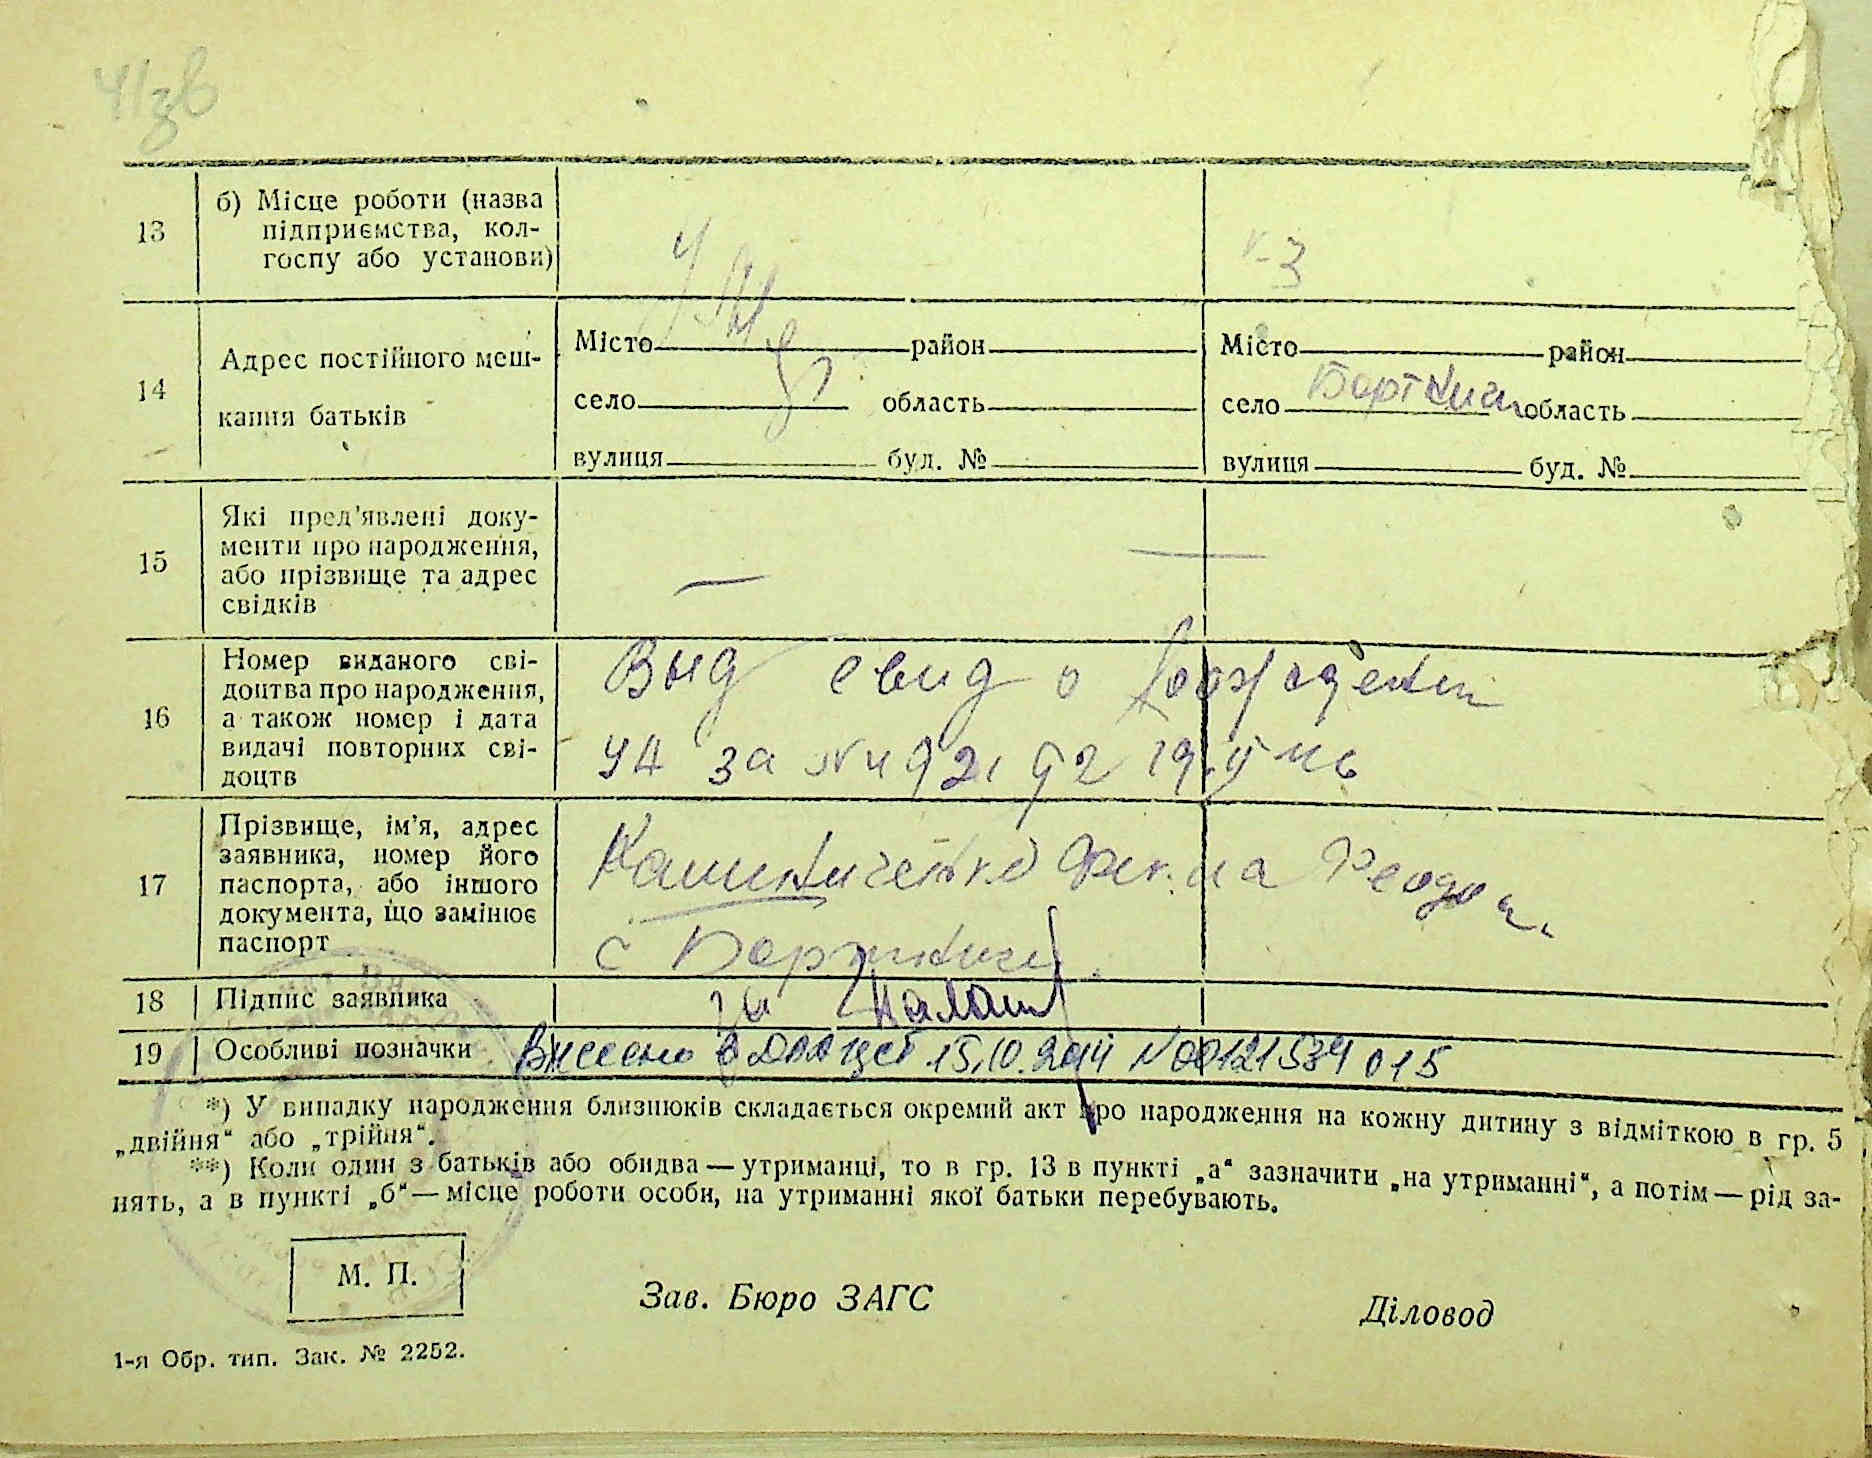 13
б) Місце роботи (назва
підприємства, кол-
госпу або установи)
к-з
14
Адрес постійного меш-
кання батьків
Місто район
село область
вулиця буд. №
Місто район
село Бортничи область
вулиця буд. №
15
Які пред'явлені доку-
менти про народження,
або прізвище та адрес
свідків
—
—
16
Номер виданого сві-
доцтва про народження,
а також номер і дата
видачі повторних сві-
доцтв
Выд свид о
УА за №
17
Прізвище, ім'я, адрес
заявника, номер його
паспорта, або іншого
документа, що замінює
паспорт
с Бортничи
18
Підпис заявника
19
Особливі позначки
Внесено в ДРАЦСГ 15.10.2014 №00121534015
*) У випадку народження близнюків складається окремий акт про народження на кожну дитину з відміткою в гр. 5
„двійня“ або „трійня“.
**) Коли один з батьків або обидва — утриманці, то в гр. 13 в пункті „а“ зазначити „на утриманні“, а потім — рід за-
нять, а в пункті „б“ — місце роботи особи, на утриманні якої батьки перебувають.
М. П.
Зав. Бюро ЗАГС
Діловод
1-я Обр. тип. Зак. № 2252.